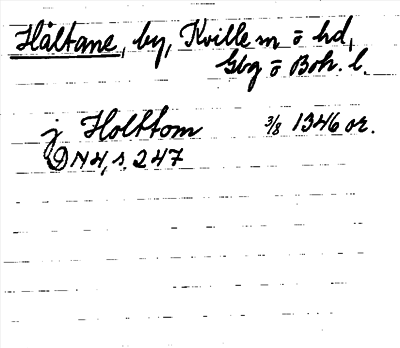 Håltane, by, Kville sn o hd,
Gbg o Boh. l.
j Holttom 3/8 1346 or.
DN 4, s. 247